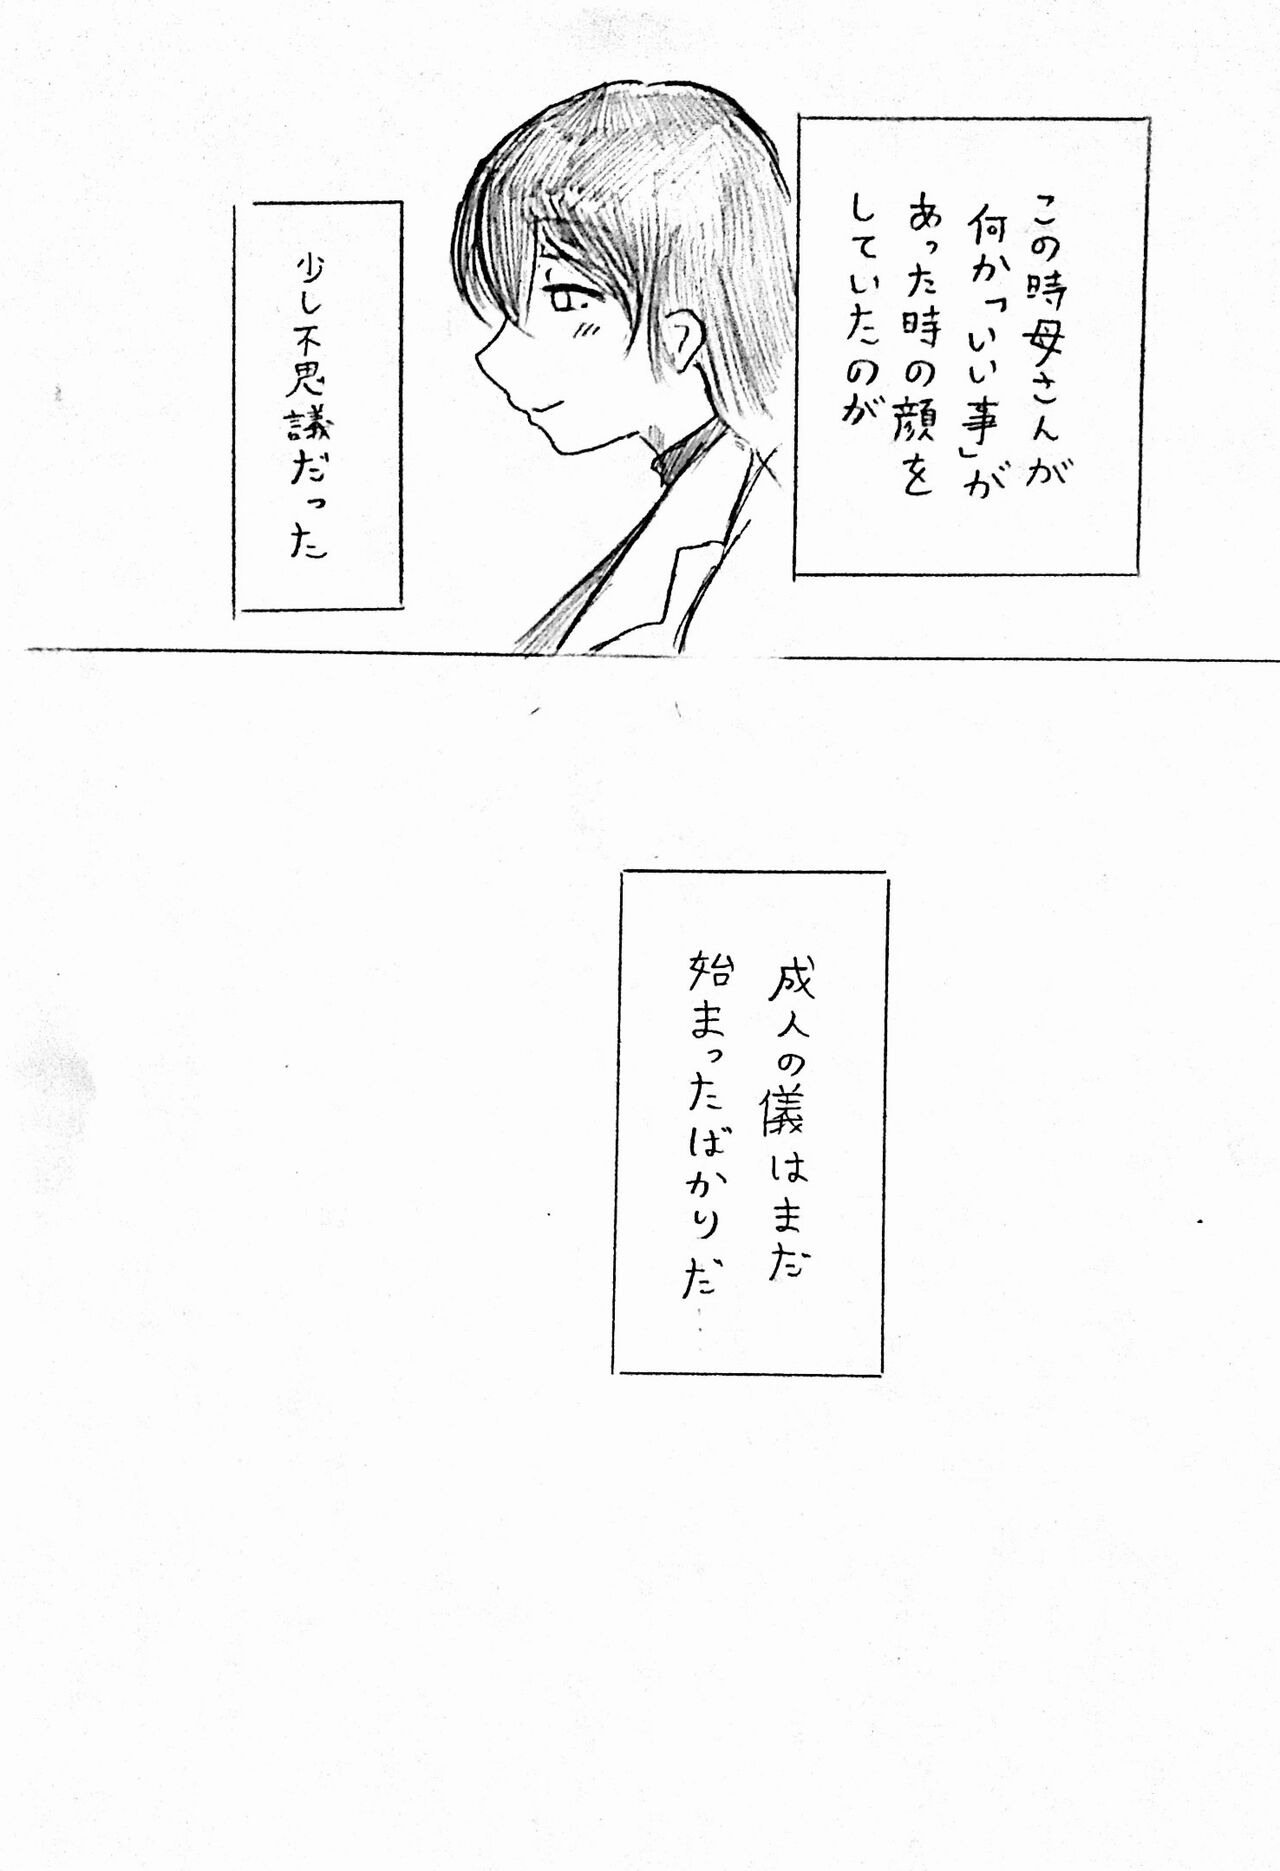 この時母さんが
何か「いい事」が
あった時の顔を
していたのが
少し不思議だった
成人の儀はまだ
始まったばかりだ…